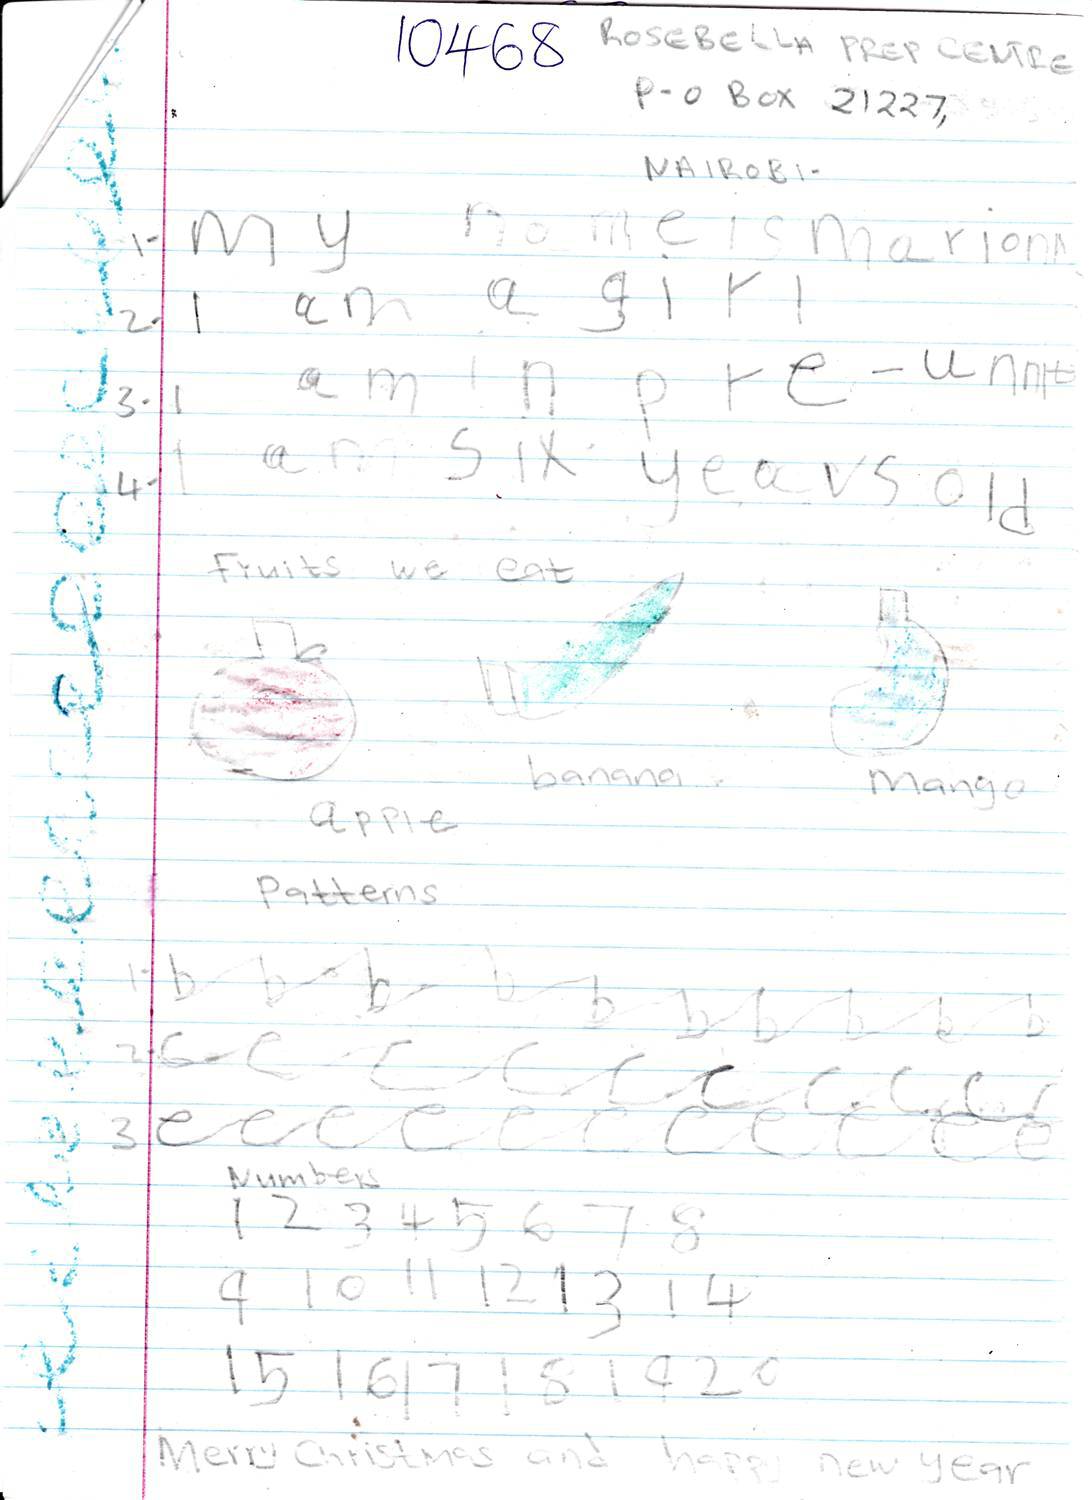 10468 ROSEBELLA PREP CENTRE
P-O BOX 21227,
NAIROBI-
1- My name is Marion
2- I am a girl
3- I am in pre-unnit
4- I am six years old
Fruits we eat
banana. Mango
apple
Patterns
1- b b b b b b b b b b
2- c c c c c c c c c c
3 e e e e e e e e e e e
Numbers
1 2 3 4 5 6 7 8
9 10 11 12 13 14
15 16 17 18 19 20
Merry Christmas and happy new year